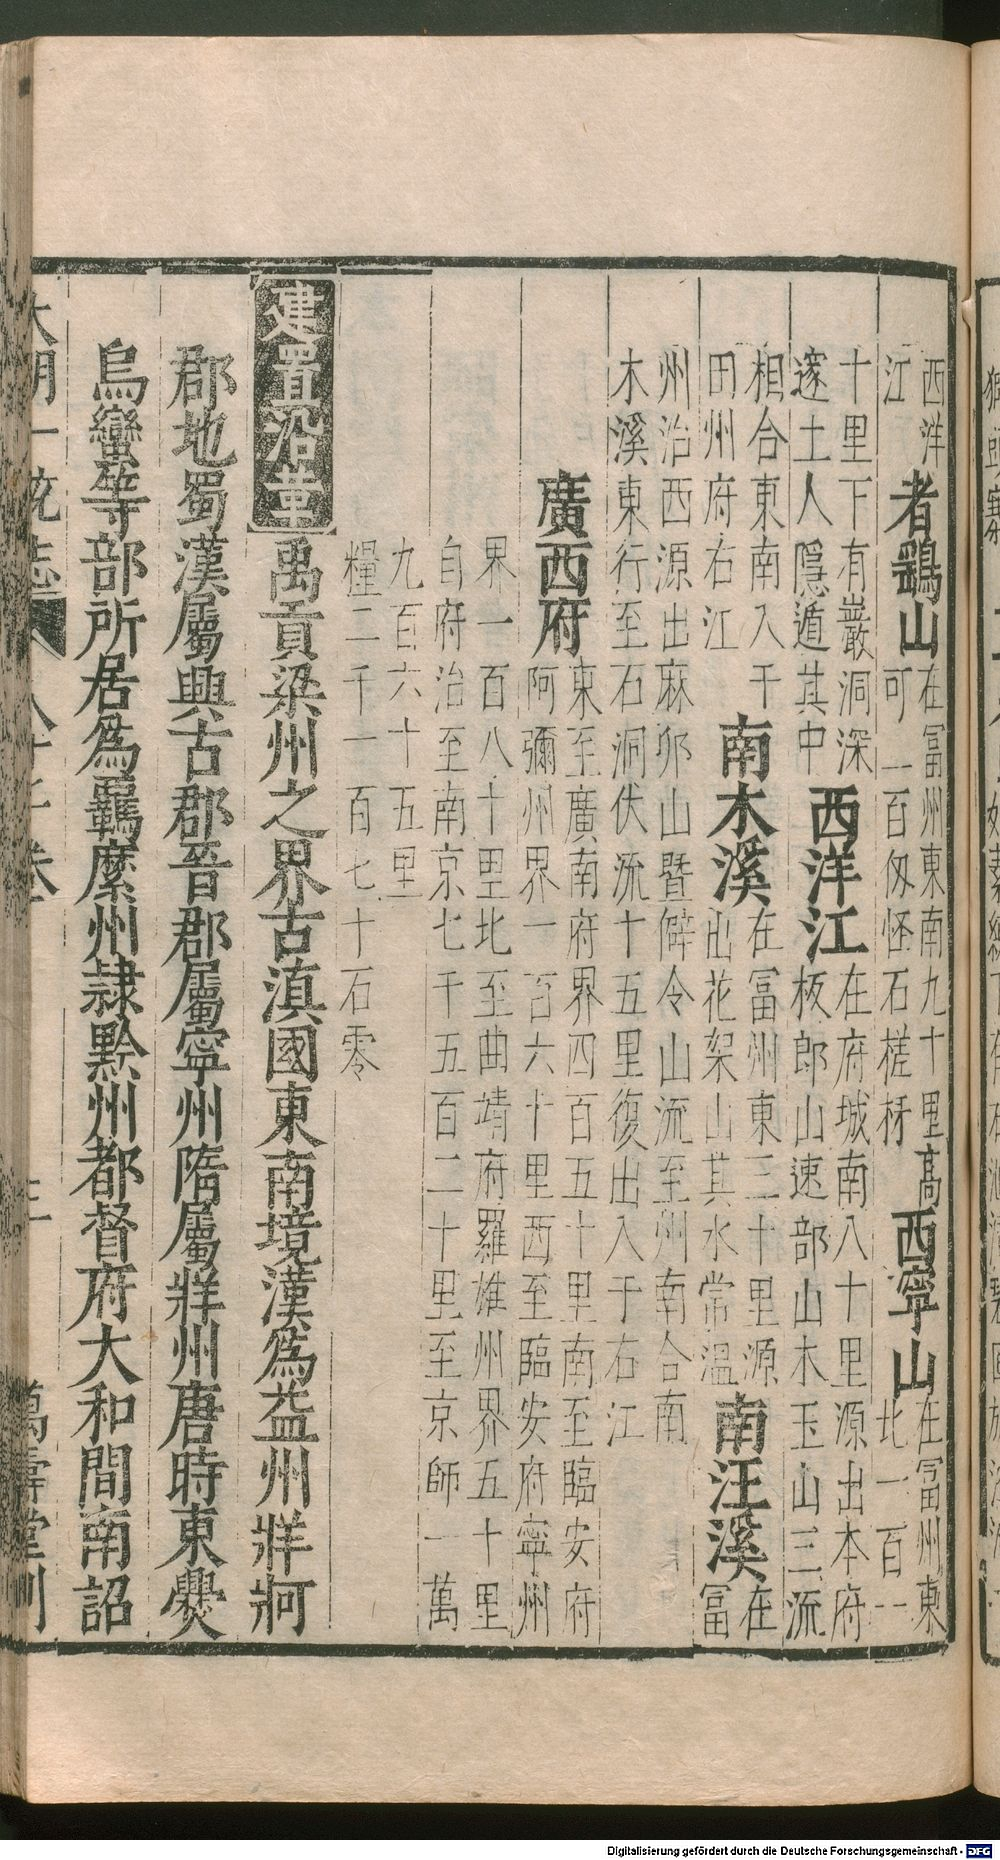 西洋
江
者鷂山
在富州東南九十里高
可一百仭怪石槎枒
西寧山
在富州東
北一百一
十里下有巖洞深
邃土人隱遁其中
西洋江
在府城南八十里源出本府
板郎山速部山木玉山三流
相合東南入于
田州府右江
南木溪
在富州東三十里源
出花架山其水常溫
南汪溪
在
富
州治西源出麻夘山暨僻令山流至州南合南
木溪東行至石洞伏流十五里復出入于右江
廣西府
東至廣南府界四百五十里南至臨安府
阿彌州界一百六十里西至臨安府寧州
界一百八十里北至曲靖府羅雄州界五十里
自府治至南京七千五百二十里至京師一萬
九百六十五里
糧二千一百七十石零
建置沿革
禹貢梁州之界古滇國東南境漢爲益州牂牁
郡地蜀漢屬興古郡晉郡屬寧州隋屬牂州唐時東爨
烏蠻等部所居爲羈縻州隷黔州都督府大和間南詔
大明一統志 萬壽堂刋
Digitalisierung gefördert durch die Deutsche Forschungsgemeinschaft - DFG